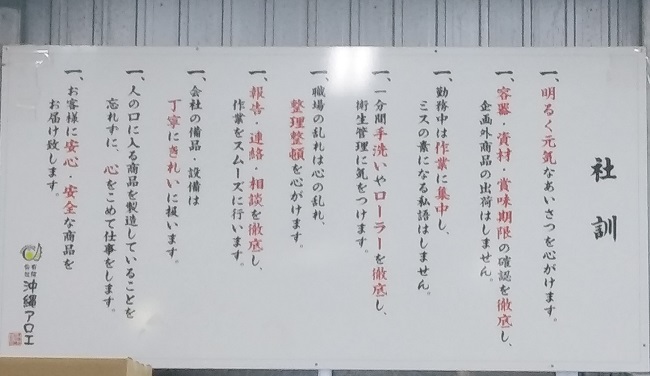 社訓
一、明るく元気なあいさつを心がけます。
一、容器・資材・賞味期限の確認を徹底し、
企画外商品の出荷はしません。
一、勤務中は作業に集中し、
ミスの素になる私語はしません。
一、一分間手洗いやローラーを徹底し、
衛生管理に気をつけます。
一、職場の乱れは心の乱れ、
整理整頓を心がけます。
一、報告・連絡・相談を徹底し、
作業をスムーズに行います。
一、会社の備品・設備は
丁寧にきれいに扱います。
一、人の口に入る商品を製造していることを
忘れずに、心をこめて仕事をします。
一、お客様に安心・安全な商品を
お届け致します。
有限会社
沖縄アロエ